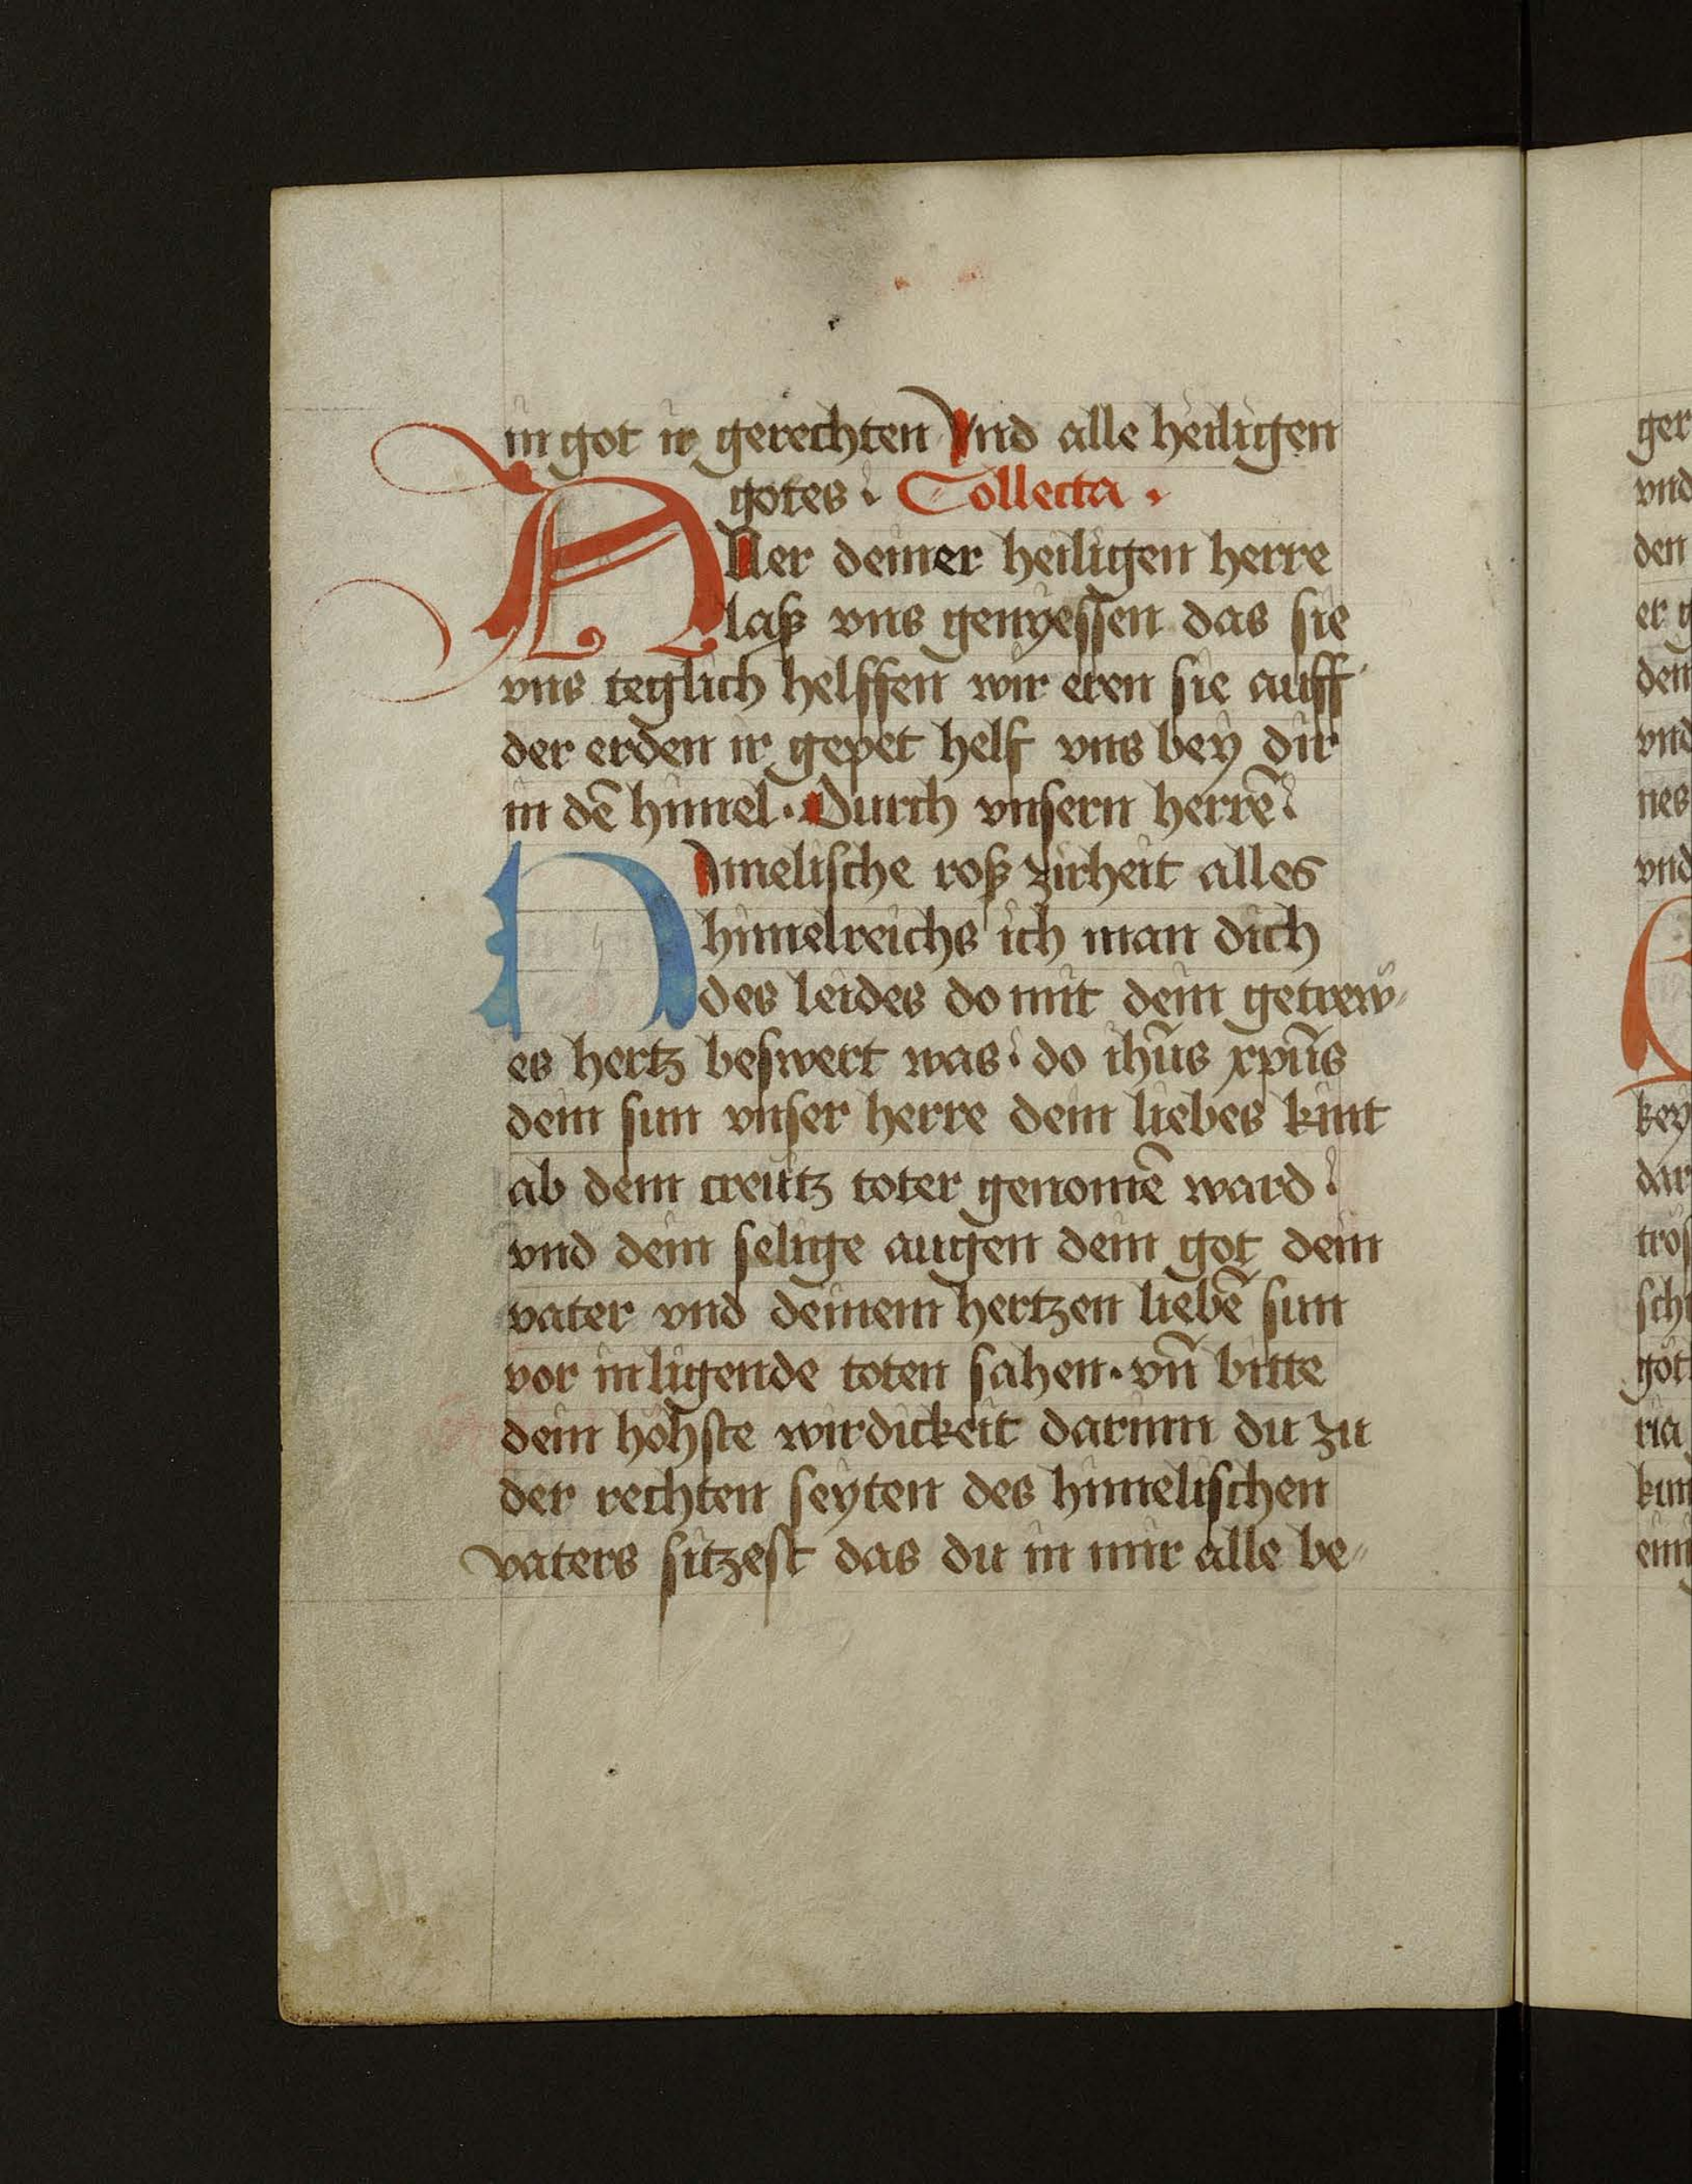 in got ir gerechten Vnd alle heiligen
gotes. Collecta.
Aller deiner heiligen herre
laß vns genyessen das sie
vns teglich helffen wir eren sie auff
der erden ir gepet helf vns bey dir
in dē himel. Durch vnsern herrē.
Himelische roß zirheit alles
himelreichs ich man dich
des leides do mit dein getrew-
es hertz beswert was. do ihūs xpūs
dein sun vnser herre dein liebes kint
ab dem creütz toter genomē ward.
vnd dein selige augen dein got dein
vater vnd deinem hertzen liebē sun
vor in ligende toten sahen. vn̄ bitte
dein höhste wirdickeit darinn du zu
der rechten seyten des himelischen
vaters sitzest das du in mir alle be-
ger
vnd
den
er g
den
vnd
nes
vnd
key
dar
trös
sch
göt
ria
kun